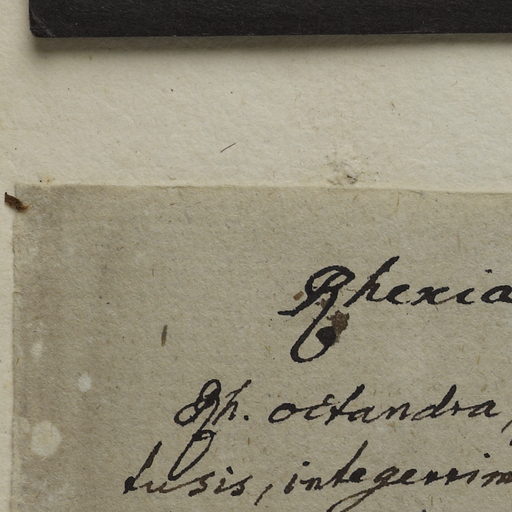 Rhexia
Rh. octandra,
tusis, integerrim